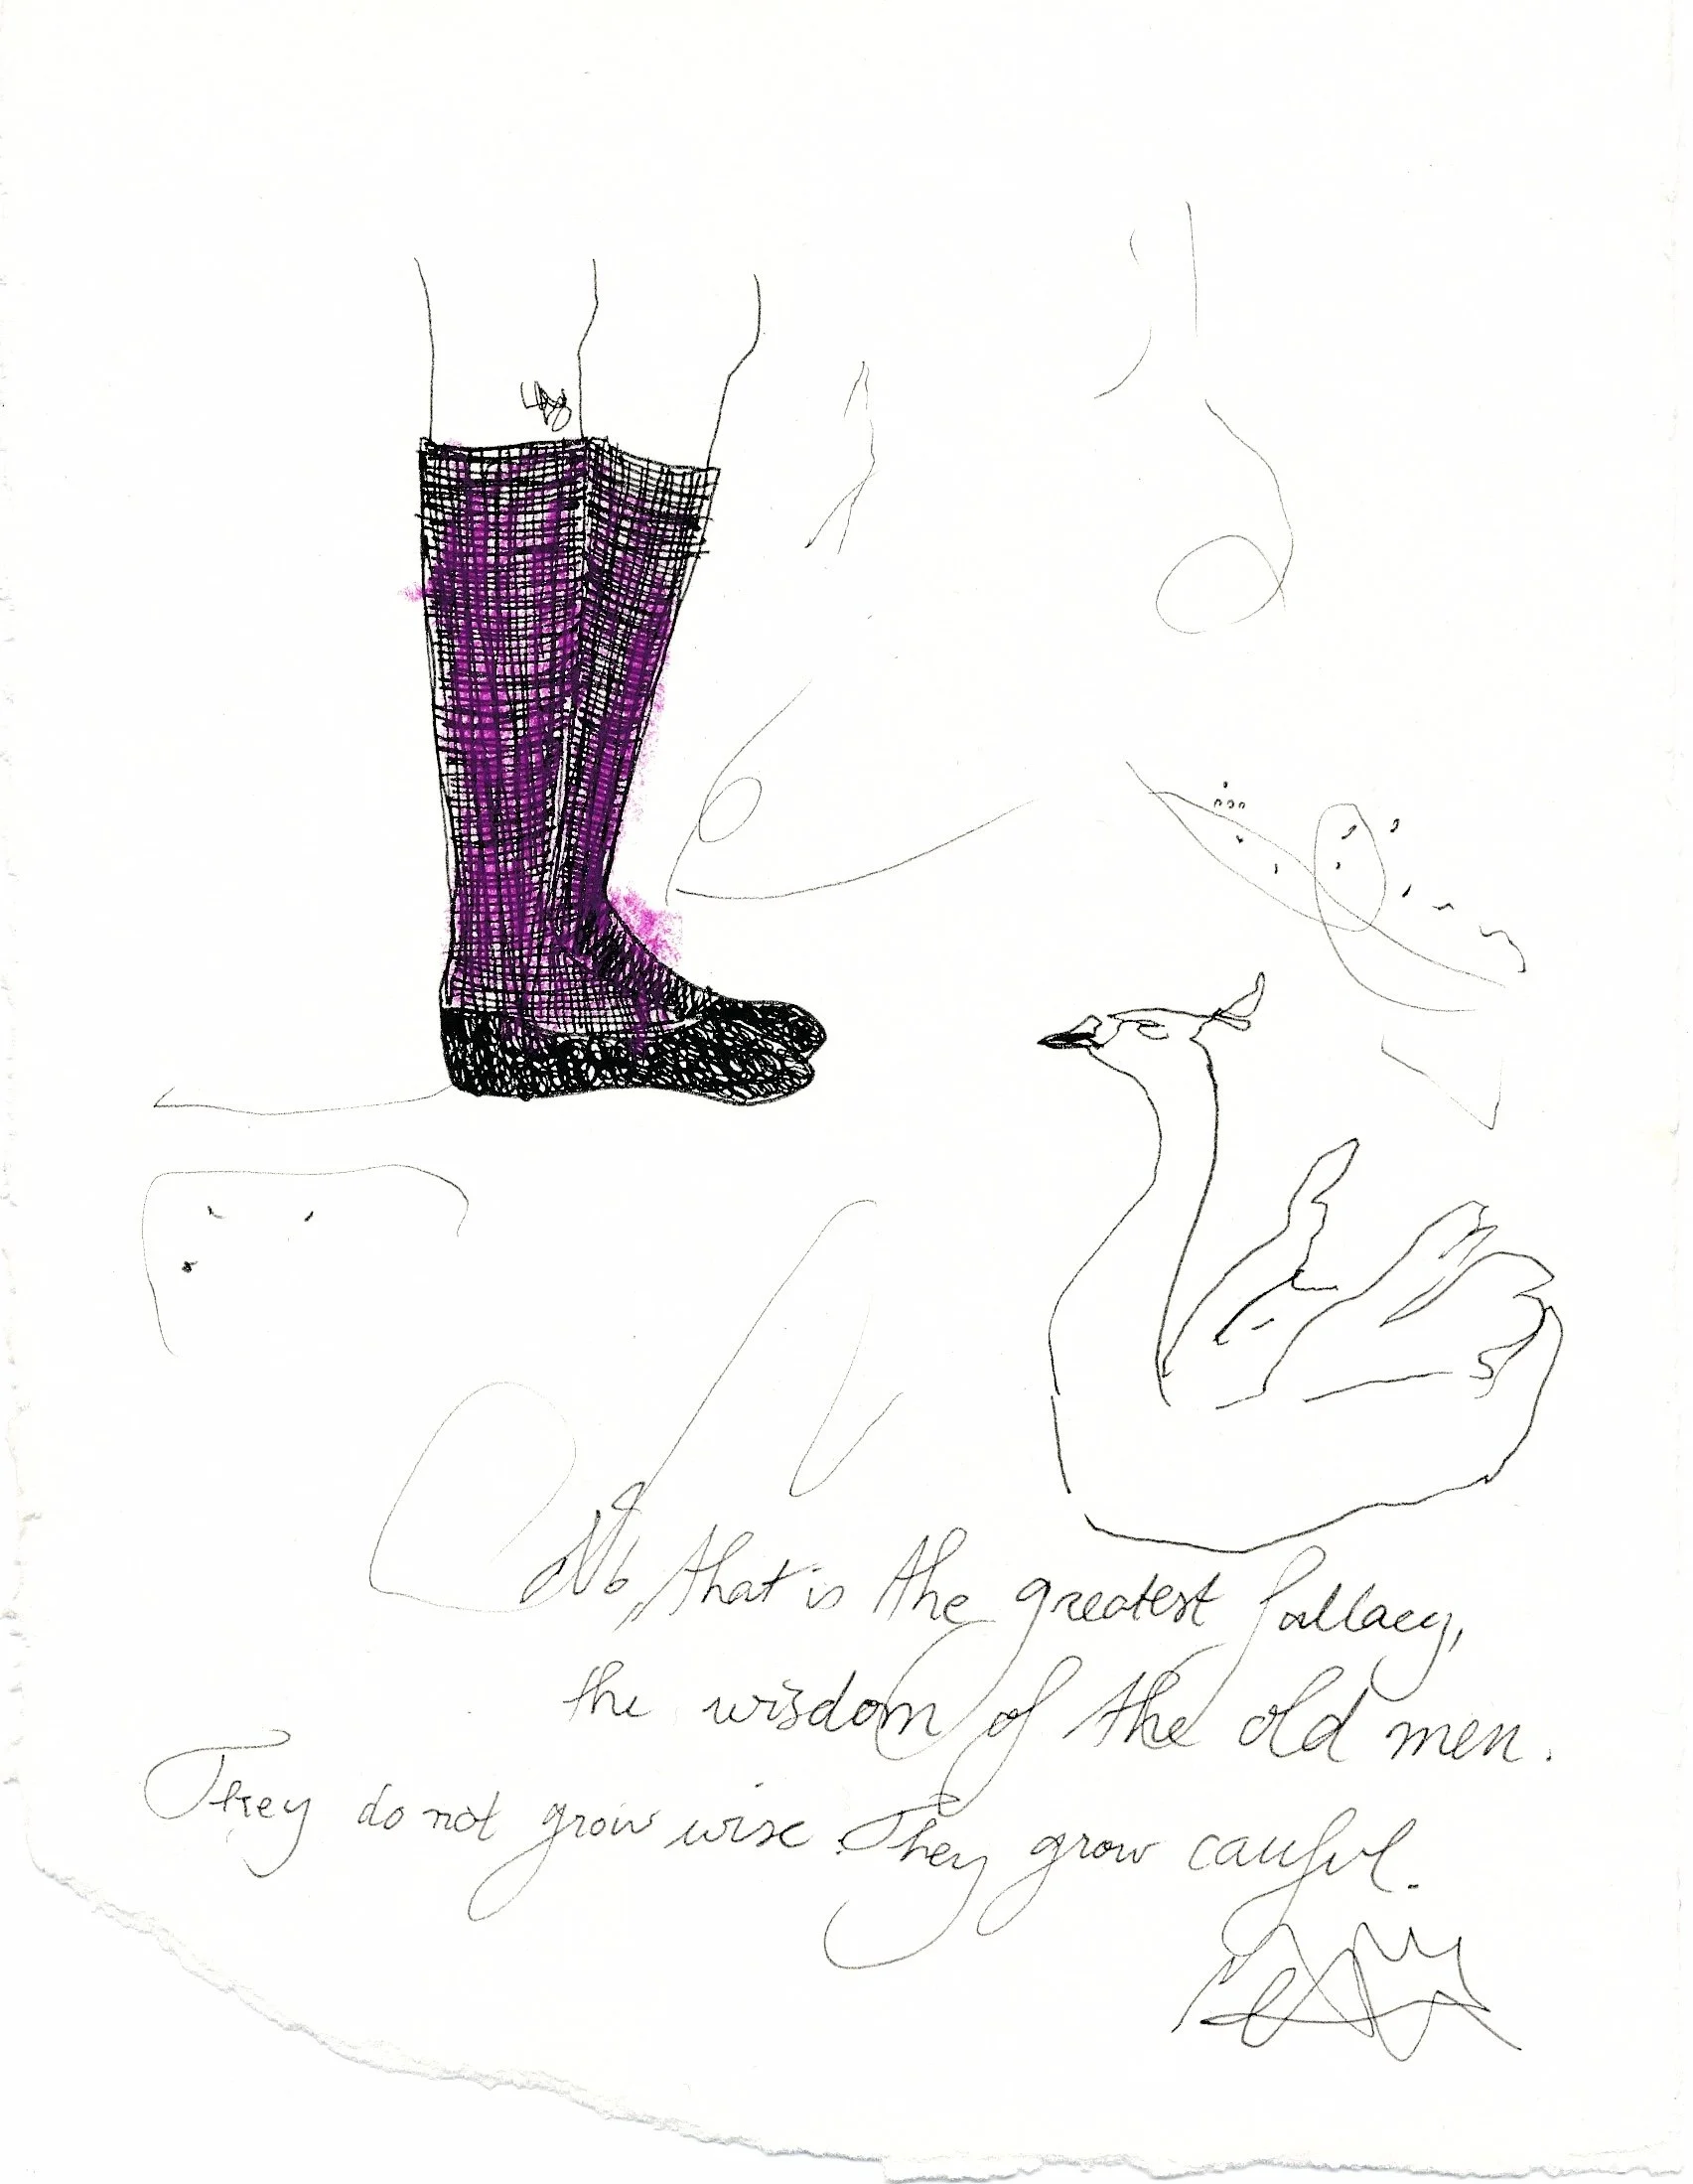 No, that is the greatest fallacy,
the wisdom of the old men.
They do not grow wise. They grow careful.